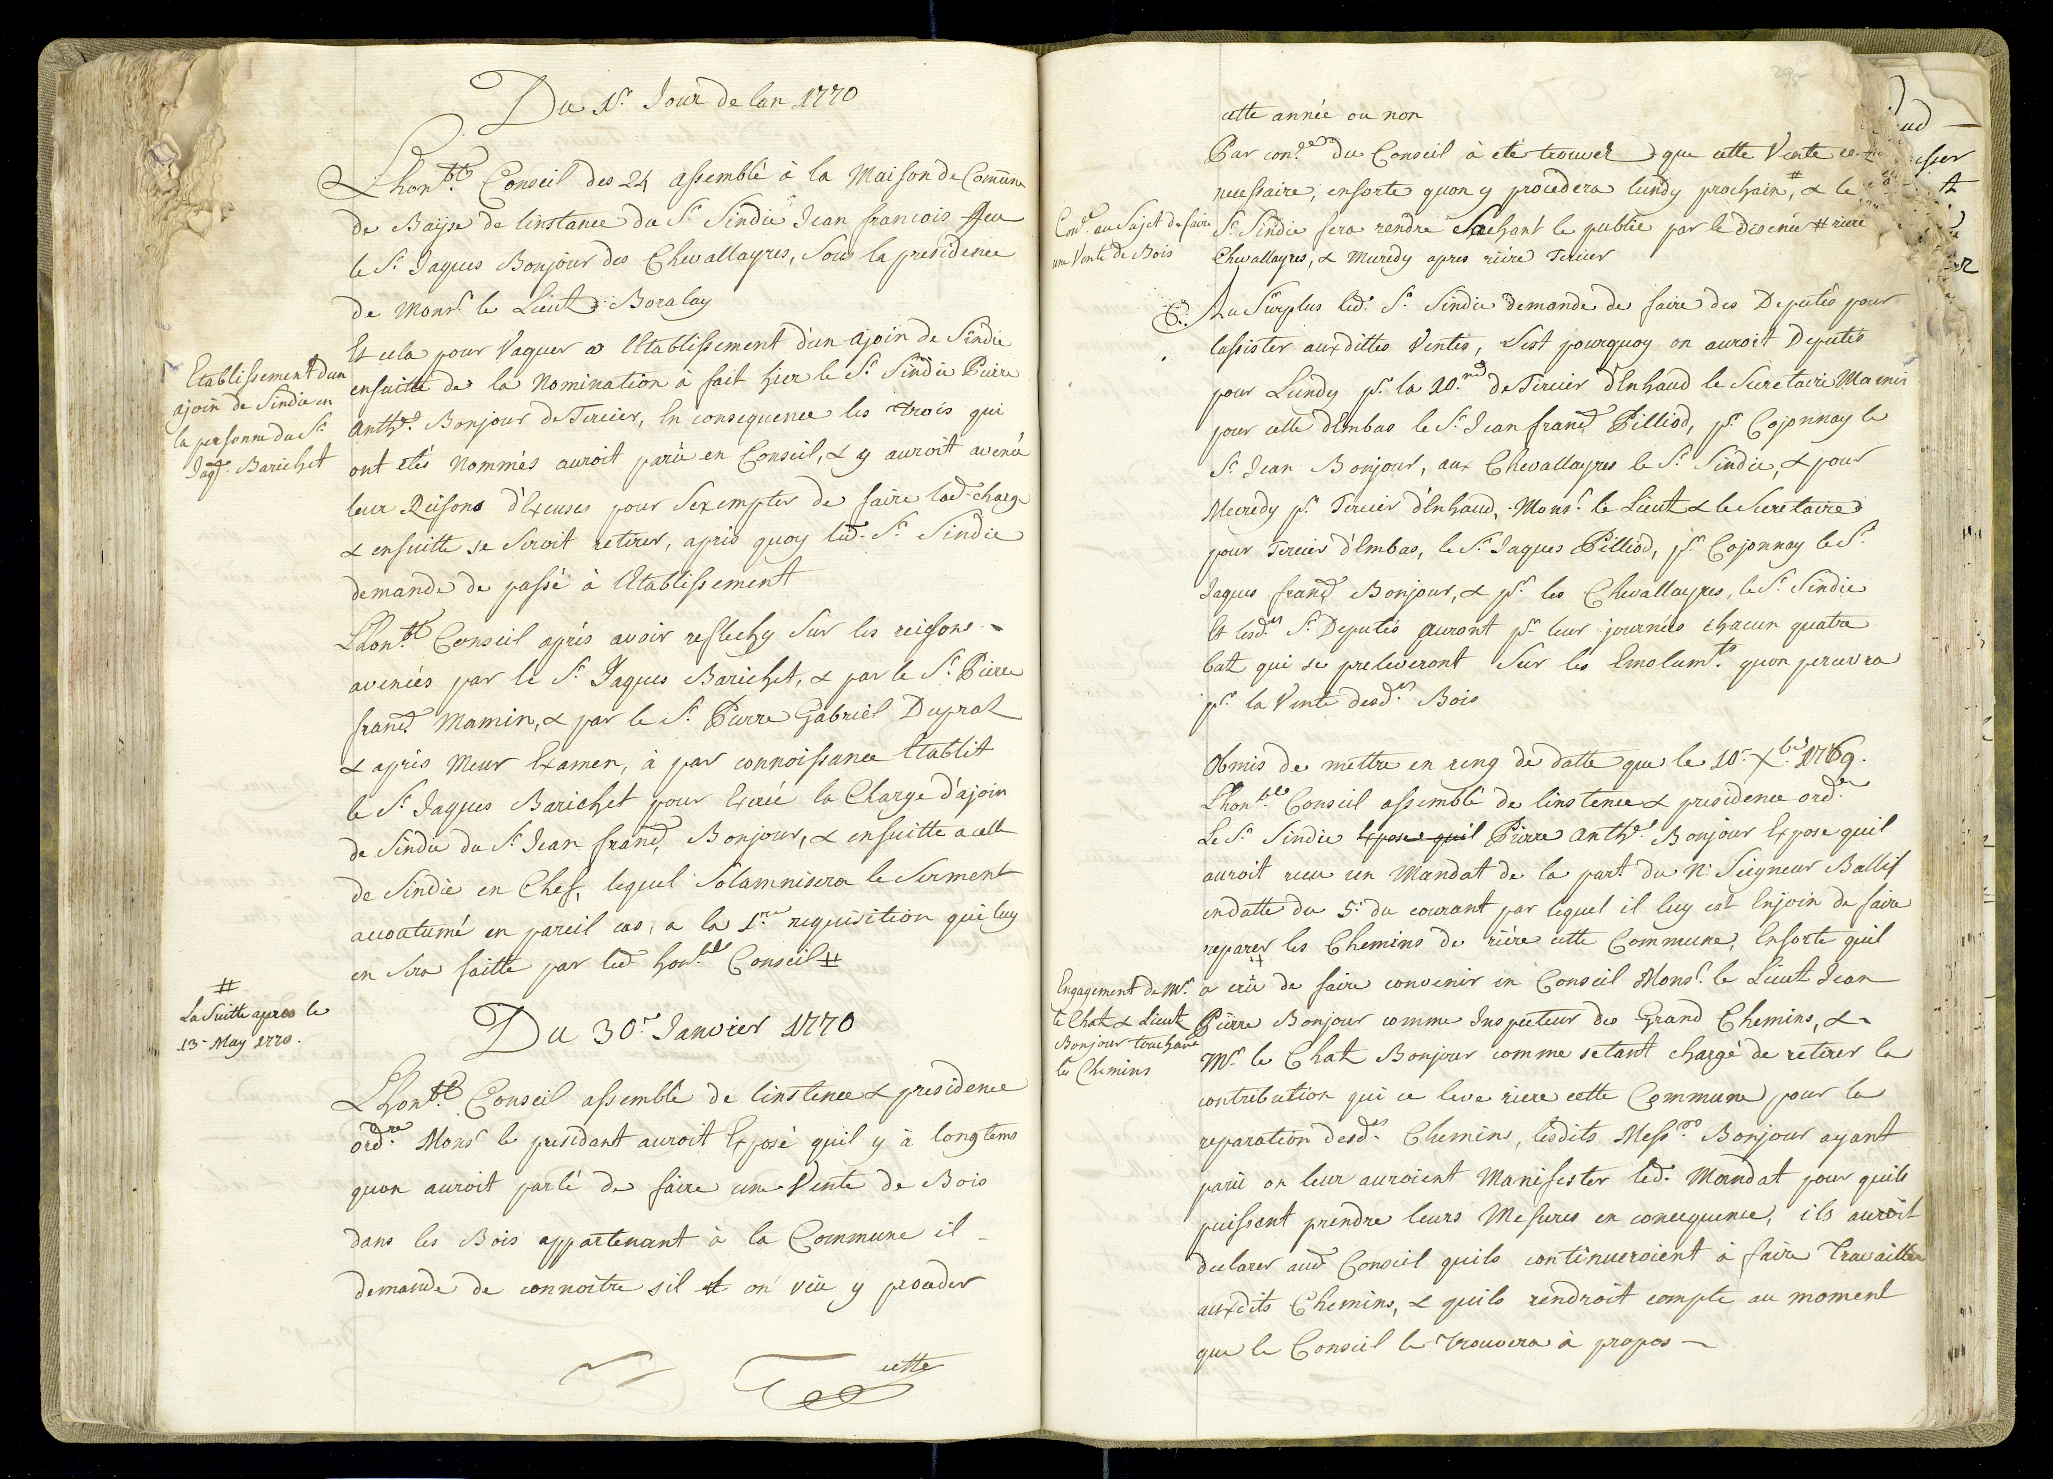 Du 1.r Jour de lan 1770
Lhon.ble Conseil des 24 assemblé à la Maison de Comune
de Baÿse de linstance du S.r Sindic Jean francois feu
le S.r Jaques Bonjour des Chevallayres, Sous la presidence
de Mons.r le Lieut. Boralay
Et cela pour Vaquer a letablissement d'un ajoin de Sindic
Etablissement dun
ajoin de Sindic en
la personne du S.r
Jaq.s Barichet
ensuitte de la Nomination à fait hier le S.r Sindic Pierre
Anth.e Bonjour de Tercier, En consequence les trois qui
ont etés Nommés auroit parû en Conseil, & y auroit avenée
leur Reisons d'Excuses pour Sexempter de faire lad. charge
& ensuitte se Seroit retirer, après quoy led. S.r Sindic
demande de passé à letablissement
Lhon.ble Conseil après avoir reflechy Sur les reisons
avenées par le S.r Jaques Barichet, & par le S.r Pierre
franç. Mamin, & par le S.r Pierre Gabriel Dupraz
& après Meur Examen, à par connoissance Etablit
le S.r Jaques Barichet pour Exercé la Charge d'ajoin
de Sindic du S.r Jean franç. Bonjour, & ensuitte a celle
de Sindic en Chef, lequel Solamnisera le Serment
accoutumé en pareil cas, a la 1.re requisition qui luy
en sera faitte par led. hon.ble Conseil #
#
La Suitte apres le
13.e May 1770.
Du 30.e Janvier 1770
Lhon.ble Conseil assemblé de linstence & presidence
ord.re Mons.r le presidant auroit Exposé quil y à longtems
quon auroit parlé de faire une Vente de Bois
dans les Bois appartenant à la Commune il
demande de connoitre sil on veu y proceder
cette
cette année ou non
Par con.ce du Conseil à été trouvez que cette Vente
necessaire, ensorte quon y procedera lundy prochain, # & le
Con.ce au Sujet de faire
une Vente de Bois
S.r Sindic fera rendre Sachant le publie par le # riere
Chevallayres, & Mercredy apres riere Tercier
Au Surplus led. S.r Sindic demande de faire des Deputés pour
lassister auxdittes Ventes, Cest pourquoy on auroit Deputés
pour Lundy p.r la de Tercier d'Enhaud le Secretaire Mamin
pour celle d'Embas le S.r Jean franç. Pilliod, p.r Cojonnay le
S.r Jean Bonjour, aux Chevallayres le S.r Sindic, & pour
Mecredy p.r Tercier d'Enhaud, Mons.r le Lieut & le Secretaire
pour Tercier d'Embas, le S.r Jaques Pilliod, p.r Cojonnay le S.r
Jaques franç. Bonjour, & p.r les Chevallayres, le S.r Sindic
Et lesd.s S.r Deputés auront p.r leur journées chacun quatre
bat qui se preleveront Sur les Emolum.ts quon percevra
p.r la Vente desd.s Bois
Obmis de mettre en reng de datte que le 10.e X.bre 1769.
Lhon.ble Conseil assemblé de linstence & presidence ord.re
Le S.r Sindic Expose quil Pierre Anth.e Bonjour Expose quil
auroit recu un Mandat de la part du N. Seigneur Ballif
endatte du 5.e du courant par lequel il luy est Enjoin de faire
reparer les Chemins de riére cette Commune, Ensorte quil
Engagement de M.r
le Chat. & Lieut
Bonjour touchant
les Chemins
a crû de faire convenir en Conseil Mons.r le Lieut Jean
Pierre Bonjour comme Inspecteur des Grand Chemins, &
M.r le Chat. Bonjour comme setant chargé de retirer la
contribution qui ce leve riere cette Commune pour la
reparation desd.s Chemins, lesdits Mess.rs Bonjour ayant
parû on leur auroient Manifester led. Mandat pour quils
puissent prendre leurs Mesures en concequence, ils auroit
declarer aud Conseil quils continueroient à faire Travailler
auxdits Chemins, & quils rendroit compte au moment
que le Conseil le Trouvera à propos